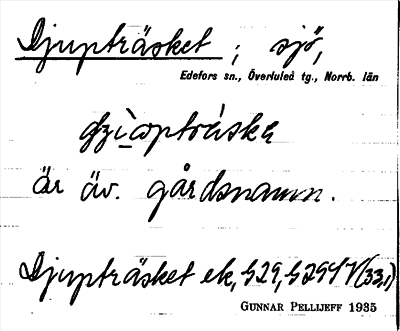 Djupträsket ; sjö,
Edefors sn., Överluleå tg., Norrb. län
är äv. gårdsnamn.
Djupträsket ek,
GUNNAR PELLIJEFF 1935